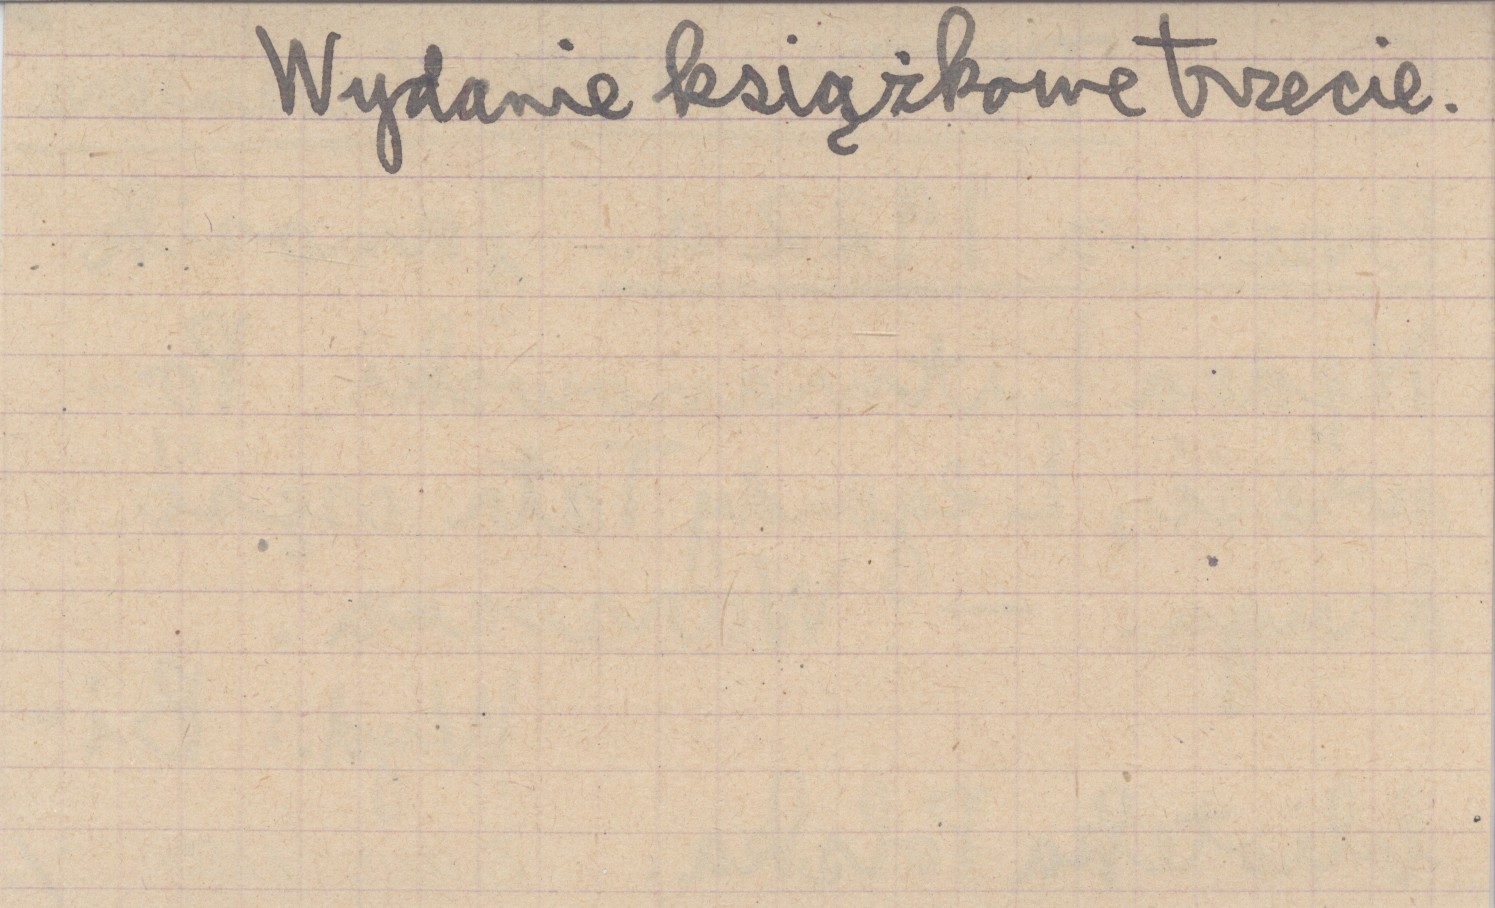 Wydanie książkowe trzecie.